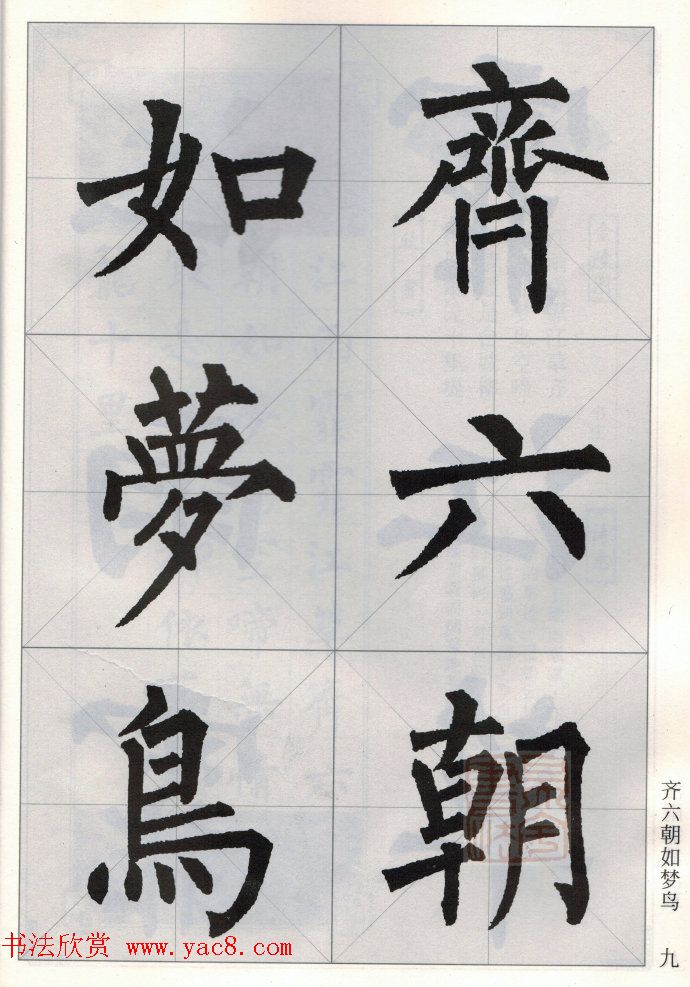 齊六朝
如夢鳥
齐六朝如梦鸟
九
书法欣赏 www.yac8.com